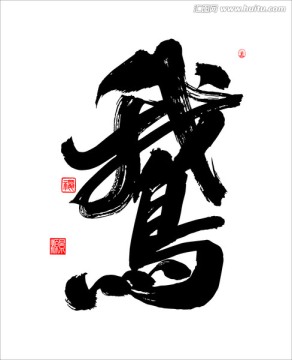 汇图网
www.huitu.com
鵞